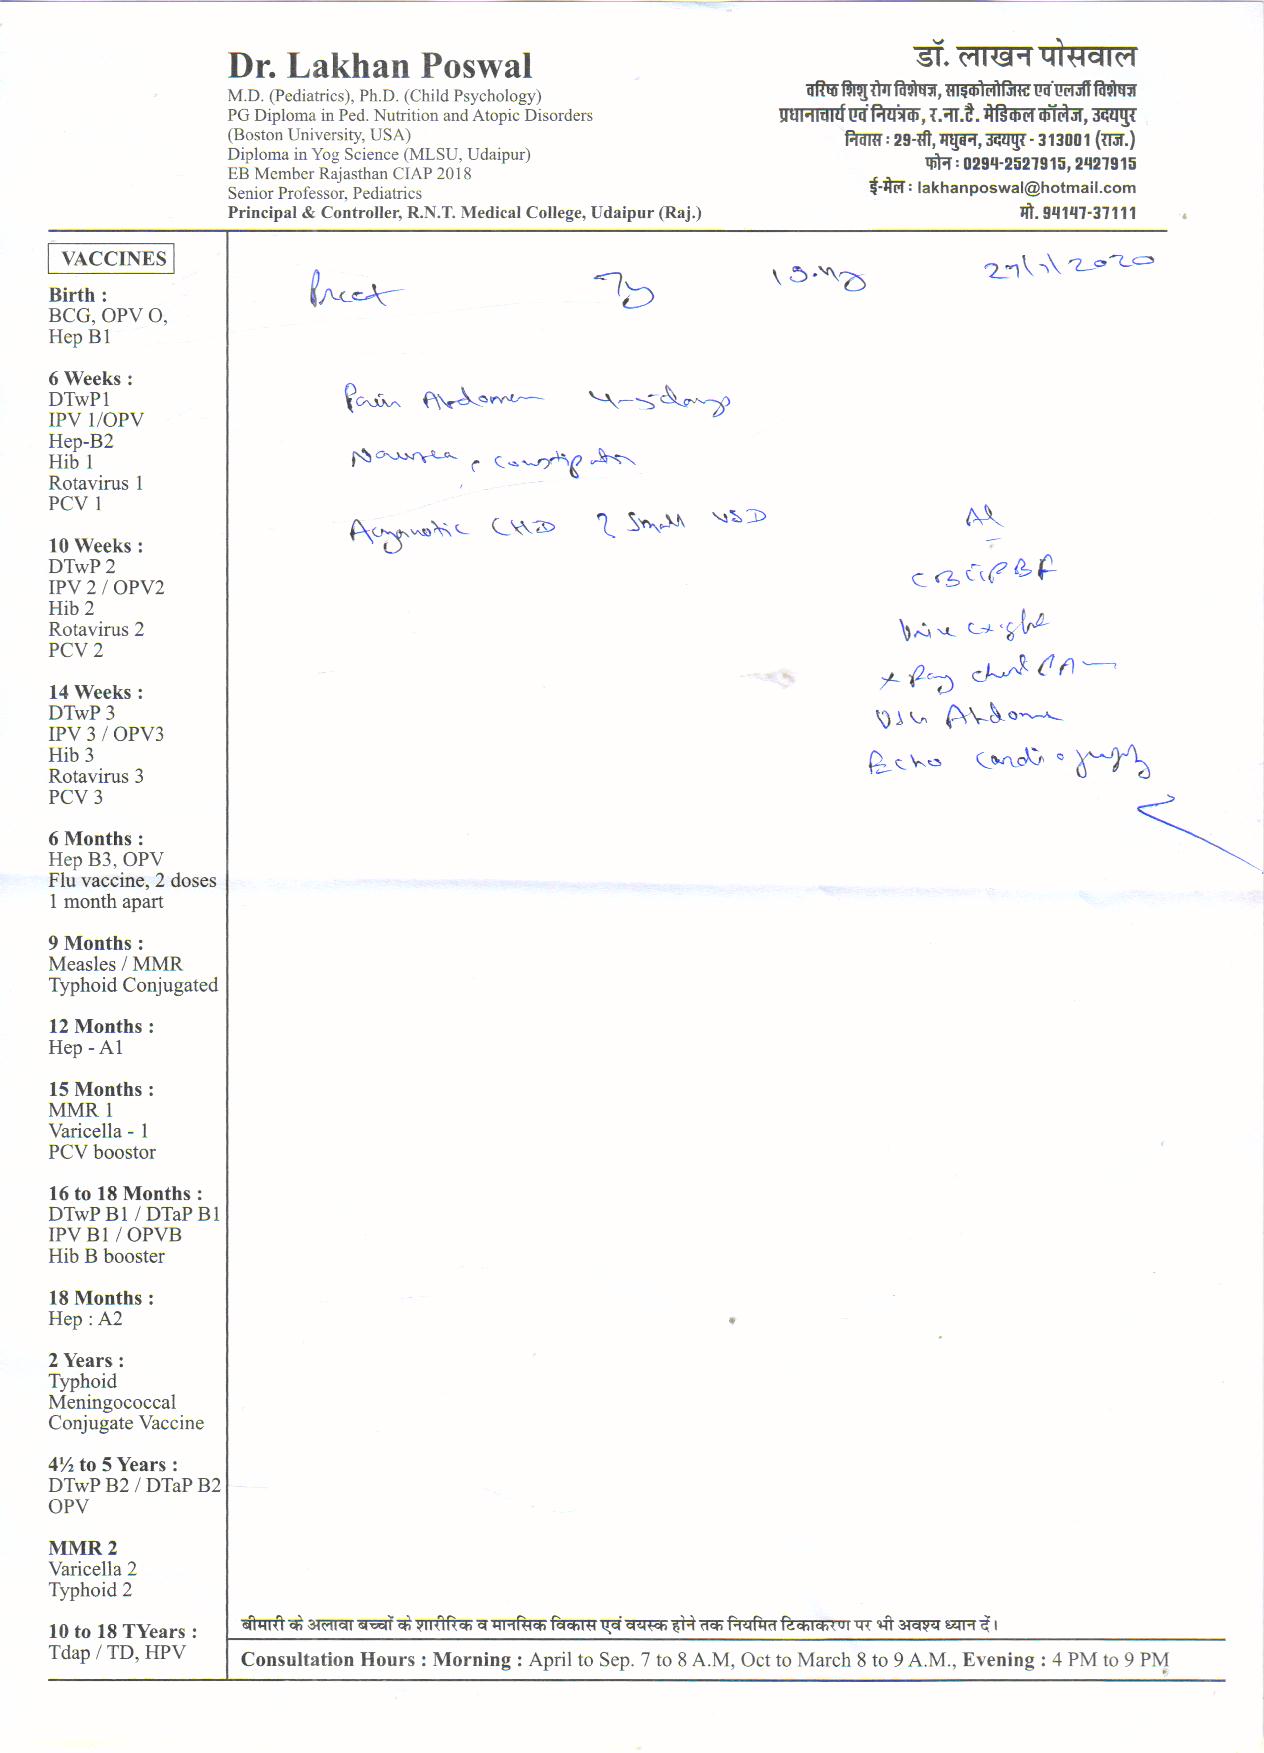 Dr. Lakhan Poswal
M.D. (Pediatrics), Ph.D. (Child Psychology)
PG Diploma in Ped. Nutrition and Atopic Disorders
(Boston University, USA)
Diploma in Yog Science (MLSU, Udaipur)
EB Member Rajasthan CIAP 2018
Senior Professor, Pediatrics
Principal & Controller, R.N.T. Medical College, Udaipur (Raj.)
डॉ. लाखन पोसवाल
वरिष्ठ शिशु रोग विशेषज्ञ, साइकोलोजिस्ट एवं एलर्जी विशेषज्ञ
प्रधानाचार्य एवं नियंत्रक, र.ना.टै. मेडिकल कॉलेज, उदयपुर
निवास : 29-सी, मधुबन, उदयपुर - 313001 (राज.)
फोन : 0294-2527915, 2427915
ई-मेल : lakhanposwal@hotmail.com
मो. 94147-37111
VACCINES
Birth :
BCG, OPV O,
Hep B1
6 Weeks :
DTwP1
IPV 1/OPV
Hep-B2
Hib 1
Rotavirus 1
PCV 1
10 Weeks :
DTwP 2
IPV 2 / OPV2
Hib 2
Rotavirus 2
PCV 2
14 Weeks :
DTwP 3
IPV 3 / OPV3
Hib 3
Rotavirus 3
PCV 3
6 Months :
Hep B3, OPV
Flu vaccine, 2 doses
1 month apart
9 Months :
Measles / MMR
Typhoid Conjugated
12 Months :
Hep - A1
15 Months :
MMR 1
Varicella - 1
PCV boostor
16 to 18 Months :
DTwP B1 / DTaP B1
IPV B1 / OPVB
Hib B booster
18 Months :
Hep : A2
2 Years :
Typhoid
Meningococcal
Conjugate Vaccine
4½ to 5 Years :
DTwP B2 / DTaP B2
OPV
MMR 2
Varicella 2
Typhoid 2
10 to 18 TYears :
Tdap / TD, HPV
Preet 7y 27/1/2020
Pain Abdomen 4-5 days
Nausea, constipation
Acyanotic CHD ? Small VSD
Urine
X Ray chest PA
USG Abdomen
Echo Cardiography
बीमारी के अलावा बच्चों के शारीरिक व मानसिक विकास एवं वयस्क होने तक नियमित टिकाकरण पर भी अवश्य ध्यान दें।
Consultation Hours : Morning : April to Sep. 7 to 8 A.M, Oct to March 8 to 9 A.M., Evening : 4 PM to 9 PM